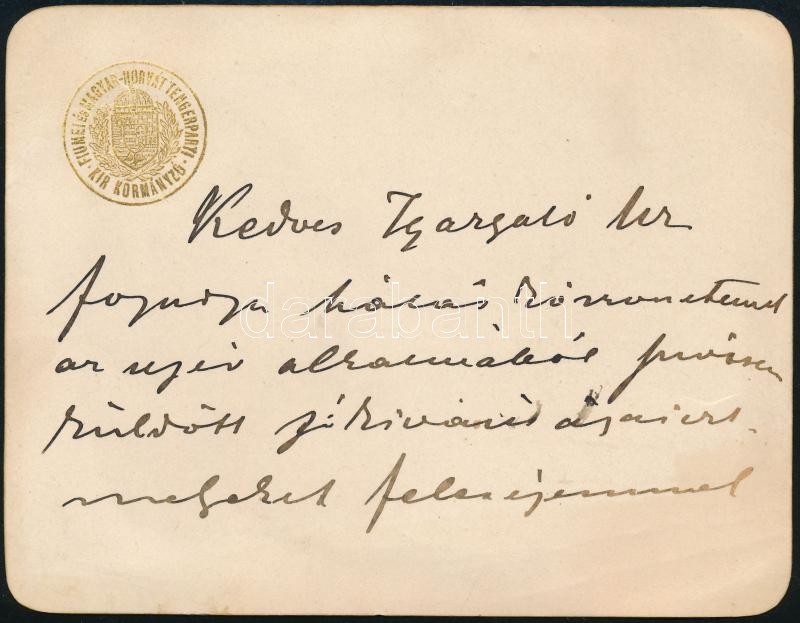 FIUMEI ÉS MAGYAR-HORVÁT TENGERPARTI
KIR KORMÁNYZÓ
Kedves Igazgató Ur
fogadja hálás köszönetemet
az ujév alkalmából szívesen
küldött jókivánságaiért
melyeket feleségemmel
darabanth